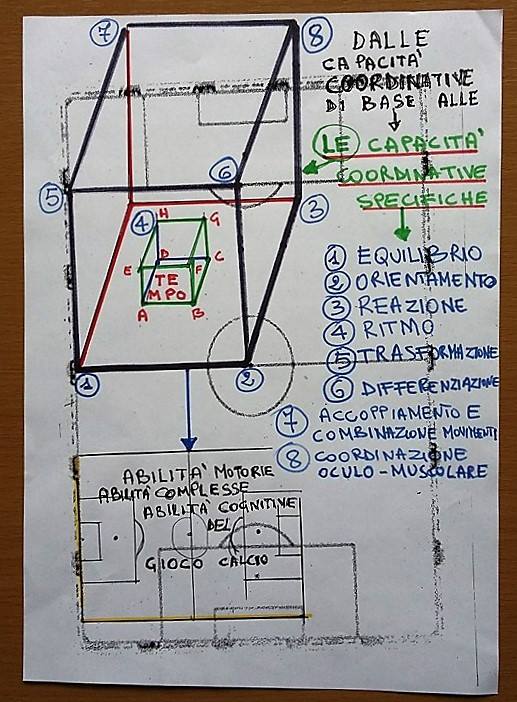 7
8
DALLE
CAPACITA'
COORDINATIVE
DI BASE ALLE
LE CAPACITA'
COORDINATIVE
SPECIFICHE
5
6
3
4
H
G
D
C
E
F
TE
MPO
A
B
1
2
1 EQUILIBRIO
2 ORIENTAMENTO
3 REAZIONE
4 RITMO
5 TRASFORMAZIONE
6 DIFFERENZIAZIONE
7 ACCOPPIAMENTO E
COMBINAZIONE MOVIMENTI
8 COORDINAZIONE
OCULO-MUSCOLARE
ABILITA' MOTORIE
ABILITA' COMPLESSE
ABILITA' COGNITIVE
DEL
GIOCO CALCIO